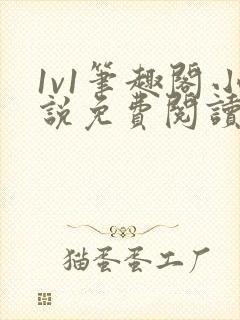 1v1筆趣閣.小
說免費閱讀
猫蛋蛋工厂